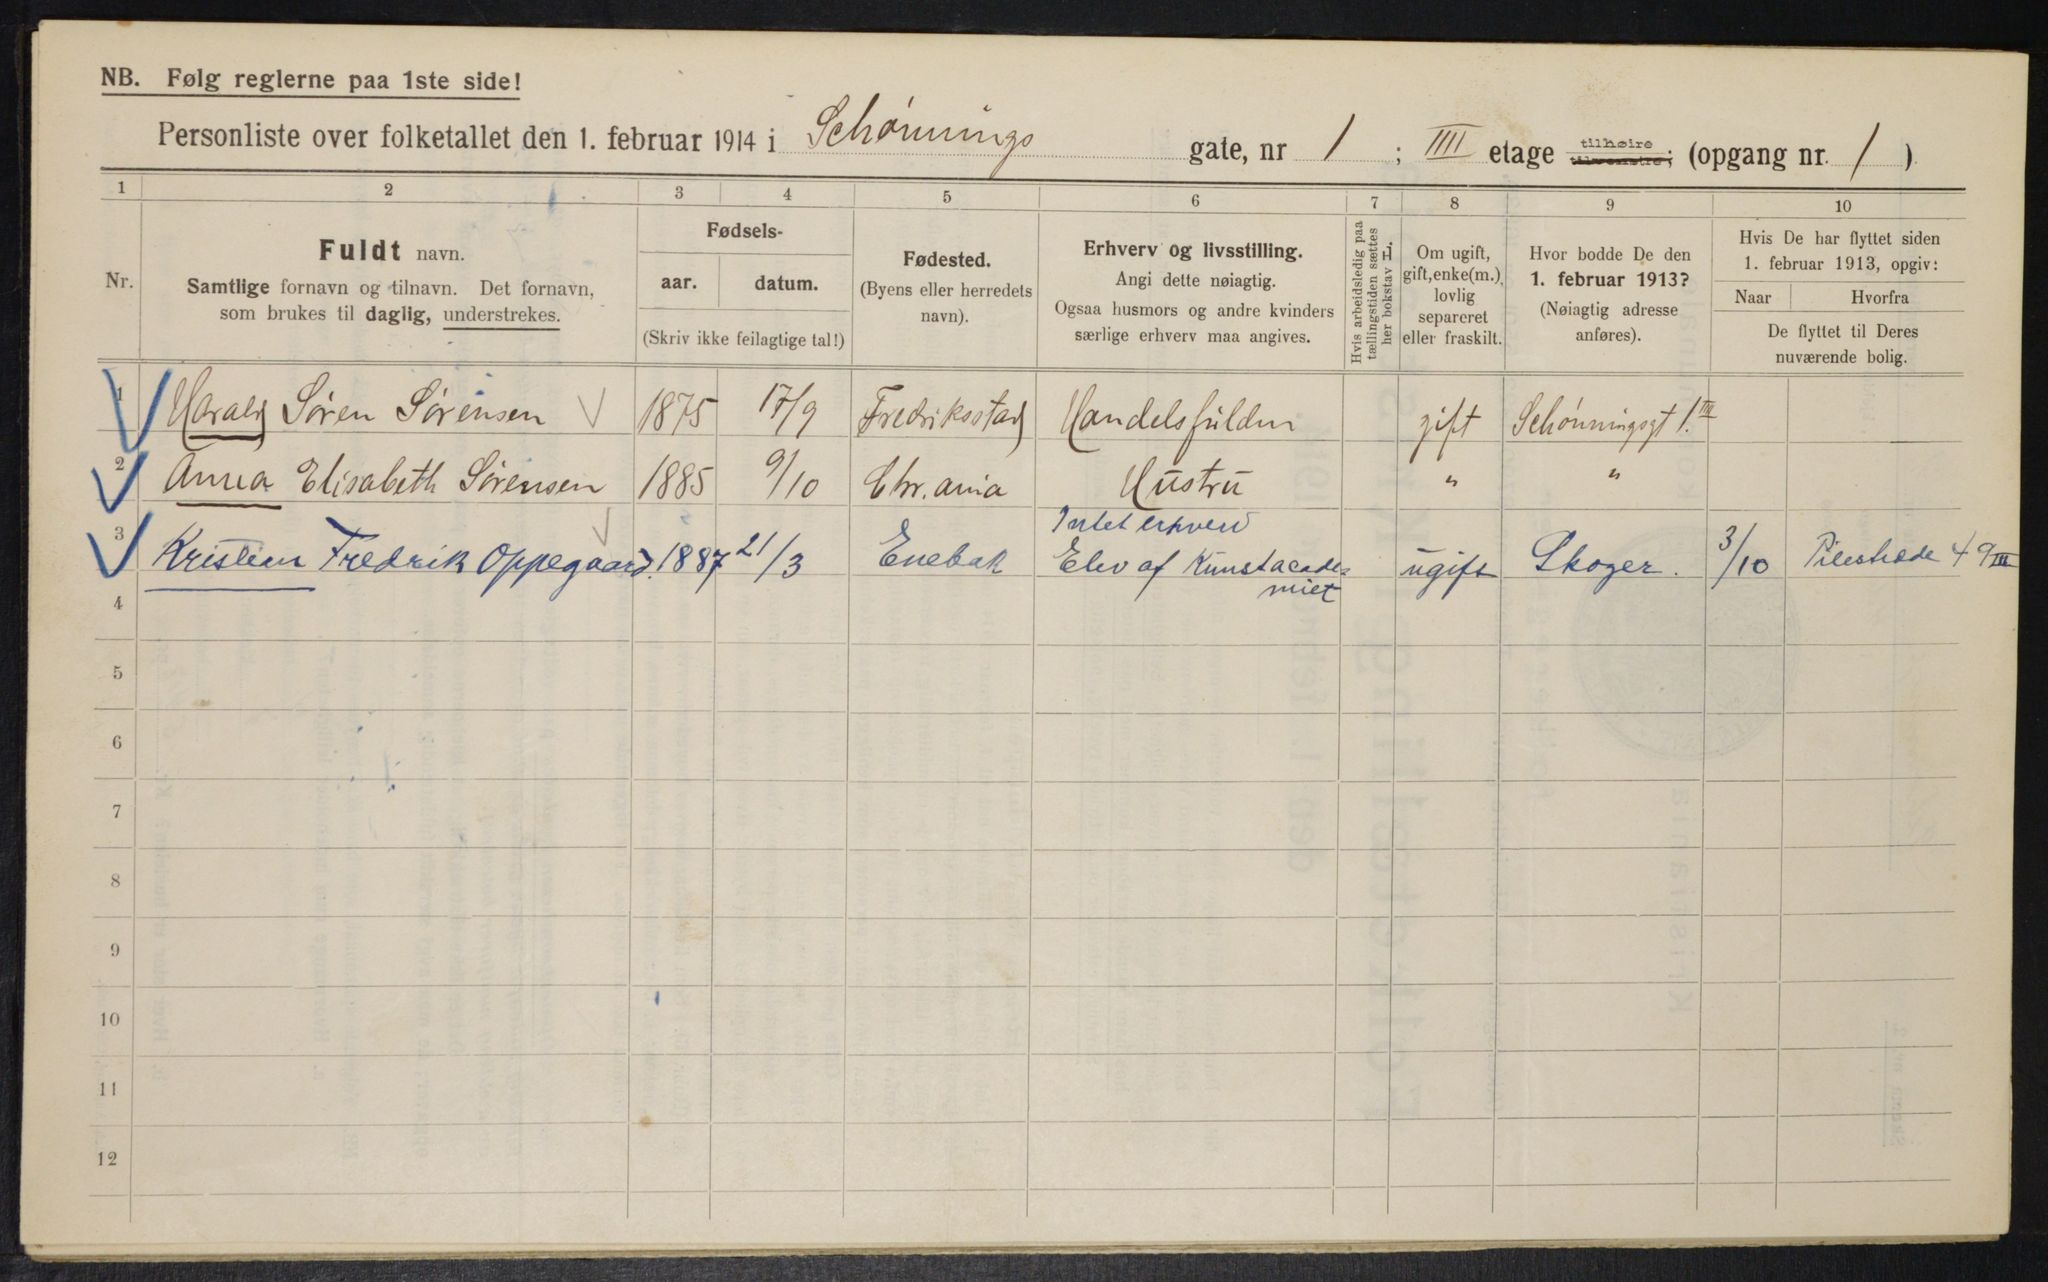 NB. Følg reglerne paa 1ste side!
Personliste over folketallet den 1. februar 1914 i Schønnings gate, nr 1 ; IIII etage tilhøire tilvenstre; (opgang nr. 1 )
1 2 3 4 5 6 7 8 9 10
Nr.
Fuldt navn.
Samtlige fornavn og tilnavn. Det fornavn,
som brukes til daglig, understrekes.
Fødsels-
aar. datum.
(Skriv ikke feilagtige tal!)
Fødested.
(Byens eller herredets
navn).
Erhverv og livsstilling.
Angi dette nøiagtig.
Ogsaa husmors og andre kvinders
særlige erhverv maa angives.
Hvis arbeidsledig paa
tællingstiden sættes
her bokstav L.
Om ugift,
gift, enke(m.),
lovlig
separeret
eller fraskilt.
Hvor bodde De den
1. februar 1913?
(Nøiagtig adresse
anføres).
Hvis De har flyttet siden
1. februar 1913, opgiv:
Naar Hvorfra
De flyttet til Deres
nuværende bolig.
1 Harald Søren Sørensen 1875 17/9 Fredriksstad gift Schønningsgt 1. III
2 Anna Elisabeth Sørensen 1885 9/10 Chr.ania Hustru " "
Intet erhverv
3 Kristian Fredrik Oppegaard. 1887 21/3 Enebak Elev af Kunstacade= ugift Skoger. 3/10 Pilestræde 49 III
miet
4
5
6
7
8
9
10
11
12